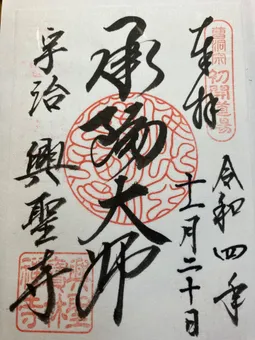 奉拝
曹洞宗 初開道場
令和四年
十一月二十日
承陽大師
宇治 興聖寺